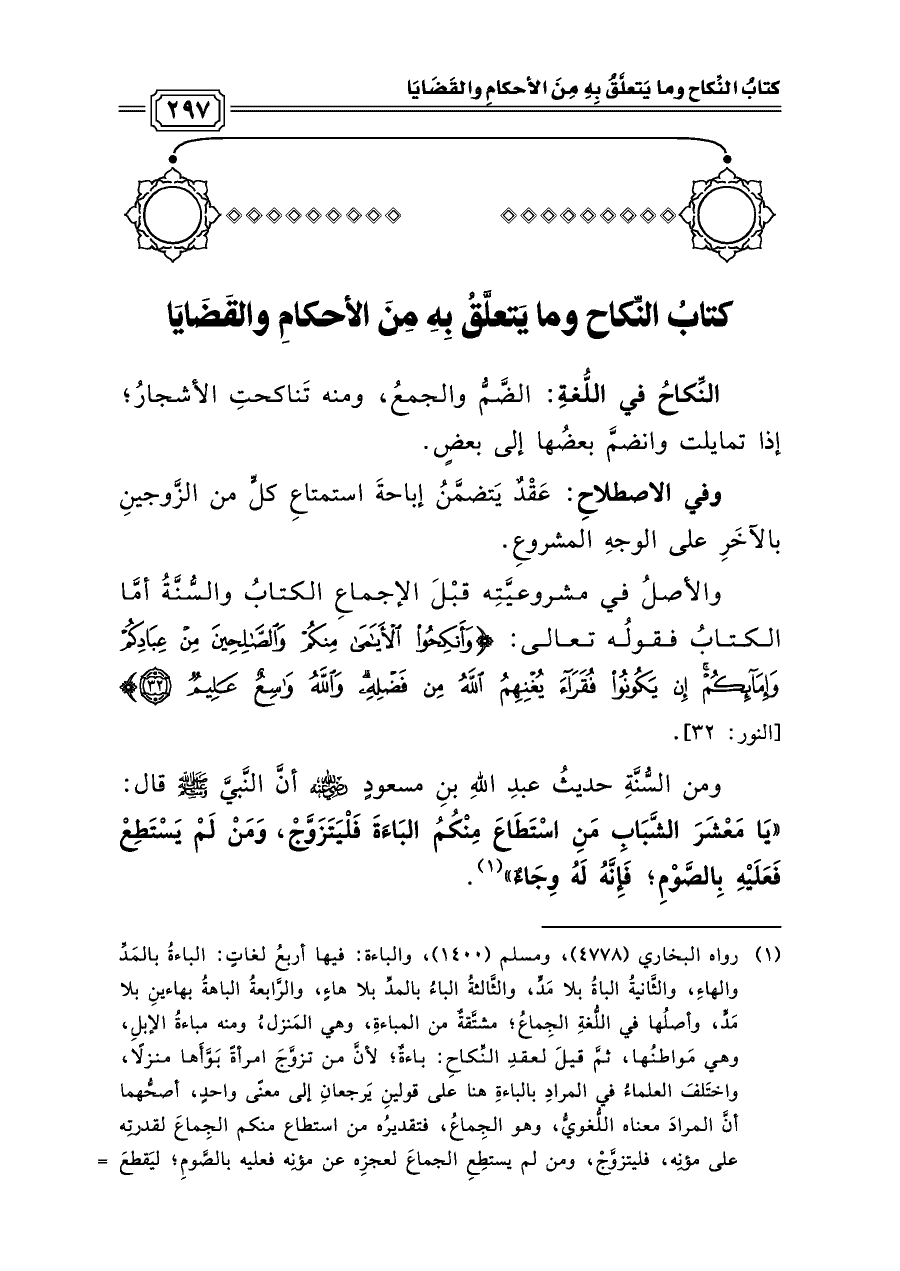 كتابُ النِّكاح وما يَتعلَّقُ بِهِ مِنَ الأحكامِ والقَضَايَا
٢٩٧
كتابُ النِّكاح وما يَتعلَّقُ بِهِ مِنَ الأحكامِ والقَضَايَا
النِّكاحُ في اللُّغةِ: الضَّمُّ والجمعُ، ومنه تَناكحتِ الأشجارُ؛
إذا تمايلت وانضمَّ بعضُها إلى بعضٍ.
وفي الاصطلاحِ: عَقْدٌ يَتضمَّنُ إباحةَ استمتاعِ كلٍّ من الزَّوجينِ
بالآخَرِ على الوجهِ المشروعِ.
والأصلُ في مشروعيَّتِه قبْلَ الإجماعِ الكتابُ والسُّنَّةُ أمَّا
الكتابُ فقولُه تعالى: ﴿وَأَنكِحُوا۟ ٱلْأَيَـٰمَىٰ مِنكُمْ وَٱلصَّـٰلِحِينَ مِنْ عِبَادِكُمْ
وَإِمَآئِكُمْ ۚ إِن يَكُونُوا۟ فُقَرَآءَ يُغْنِهِمُ ٱللَّهُ مِن فَضْلِهِۦ ۗ وَٱللَّهُ وَٰسِعٌ عَلِيمٌ ٣٢﴾
[النور: ٣٢].
ومن السُّنَّةِ حديثُ عبدِ اللهِ بنِ مسعودٍ ﵁ أنَّ النَّبيَّ ﷺ قال:
«يَا مَعْشَرَ الشَّبَابِ مَنِ اسْتَطَاعَ مِنْكُمُ البَاءَةَ فَلْيَتَزَوَّجْ، وَمَنْ لَمْ يَسْتَطِعْ
فَعَلَيْهِ بِالصَّوْمِ؛ فَإِنَّهُ لَهُ وِجَاءٌ»(١).
(١) رواه البخاري (٤٧٧٨)، ومسلم (١٤٠٠)، والباءة: فيها أربعُ لغاتٍ: الباءةُ بالمَدِّ
والهاءِ، والثَّانيةُ الباةُ بلا مَدٍّ، والثَّالثةُ الباءُ بالمدِّ بلا هاءٍ، والرَّابعةُ الباهةُ بهاءينِ بلا
مَدٍّ، وأصلُها في اللُّغةِ الجِماعُ؛ مشتَّقةٌ من المباءةِ، وهي المَنزلُ، ومنه مباءةُ الإبلِ،
وهي مَواطنُها، ثمَّ قيلَ لعقدِ النِّكاحِ: باءةٌ؛ لأنَّ من تزوَّجَ امرأةً بَوَّأَها منزلًا،
واختَلفَ العلماءُ في المرادِ بالباءةِ هنا على قولينِ يَرجعانِ إلى معنًى واحدٍ، أصحُّهما
أنَّ المرادَ معناه اللُّغويُّ، وهو الجِماعُ، فتقديرُه من استطاع منكم الجِماعَ لقدرتِه
على مؤنِه، فليتزوَّجْ، ومن لم يستطِعِ الجماعَ لعجزِه عن مؤنِه فعليه بالصَّومِ؛ ليَقطعَ =